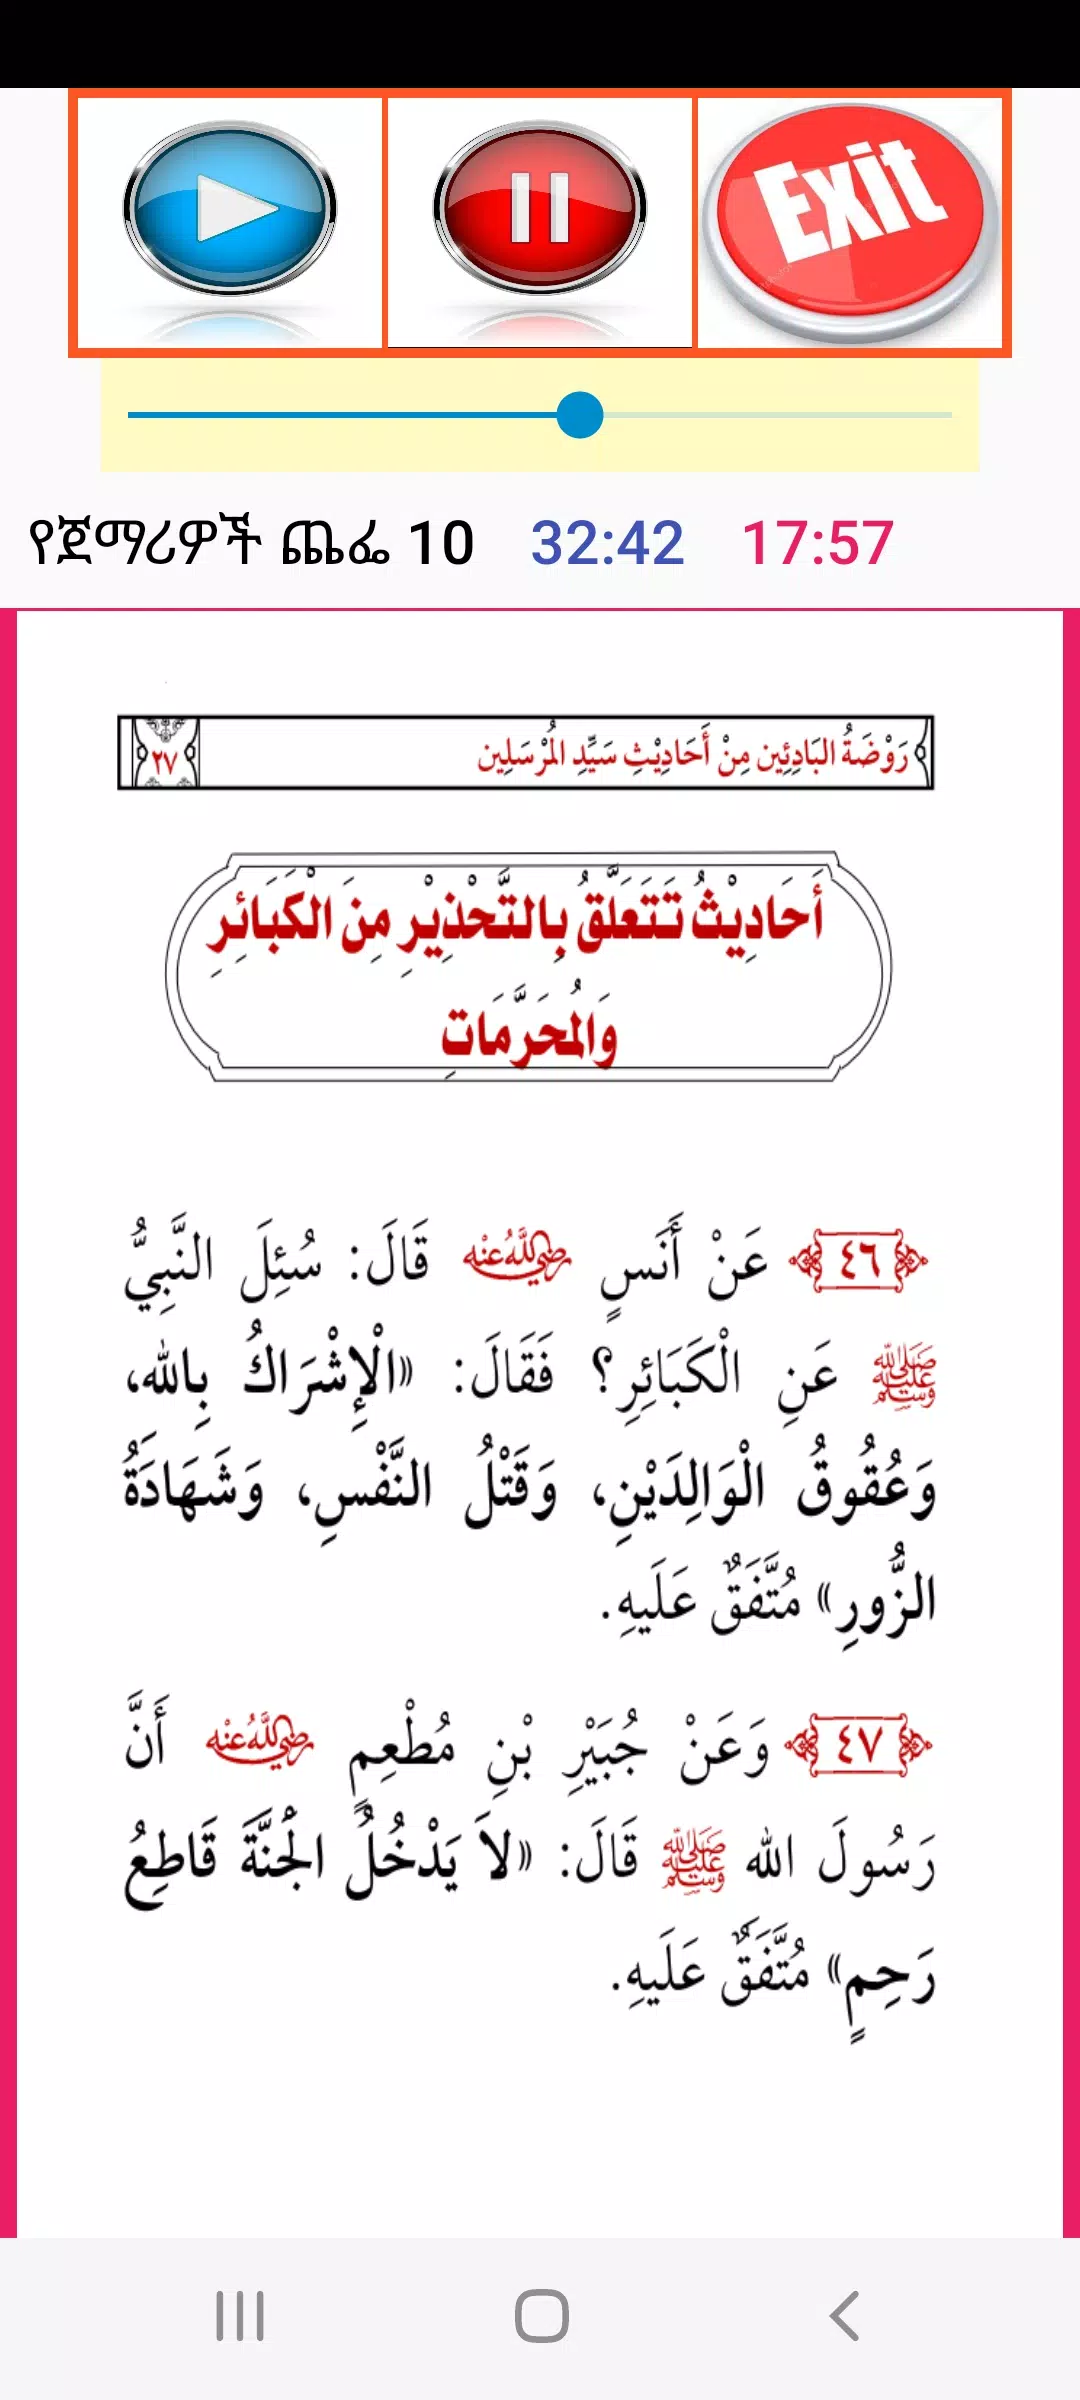 Exit
የጀማሪዎች ጨፌ 10 32:42 17:57
رَوْضَةُ البَادِئِين مِنْ أَحَادِيْثِ سَيِّدِ المُرْسَلِين ٢٧
أَحَادِيْثُ تَتَعَلَّقُ بِالتَّحْذِيْرِ مِنَ الْكَبَائِرِ
وَالمُحَرَّمَاتِ
٤٦ عَنْ أَنَسٍ رضي الله عنه قَالَ: سُئِلَ النَّبِيُّ
صلى الله عليه وسلم عَنِ الْكَبَائِرِ؟ فَقَالَ: «الْإِشْرَاكُ بِالله،
وَعُقُوقُ الْوَالِدَيْنِ، وَقَتْلُ النَّفْسِ، وَشَهَادَةُ
الزُّورِ» مُتَّفَقٌ عَلَيهِ.
٤٧ وَعَنْ جُبَيْرِ بْنِ مُطْعِمٍ رضي الله عنه أَنَّ
رَسُولَ الله صلى الله عليه وسلم قَالَ: «لاَ يَدْخُلُ الْجَنَّةَ قَاطِعُ
رَحِمٍ» مُتَّفَقٌ عَلَيهِ.